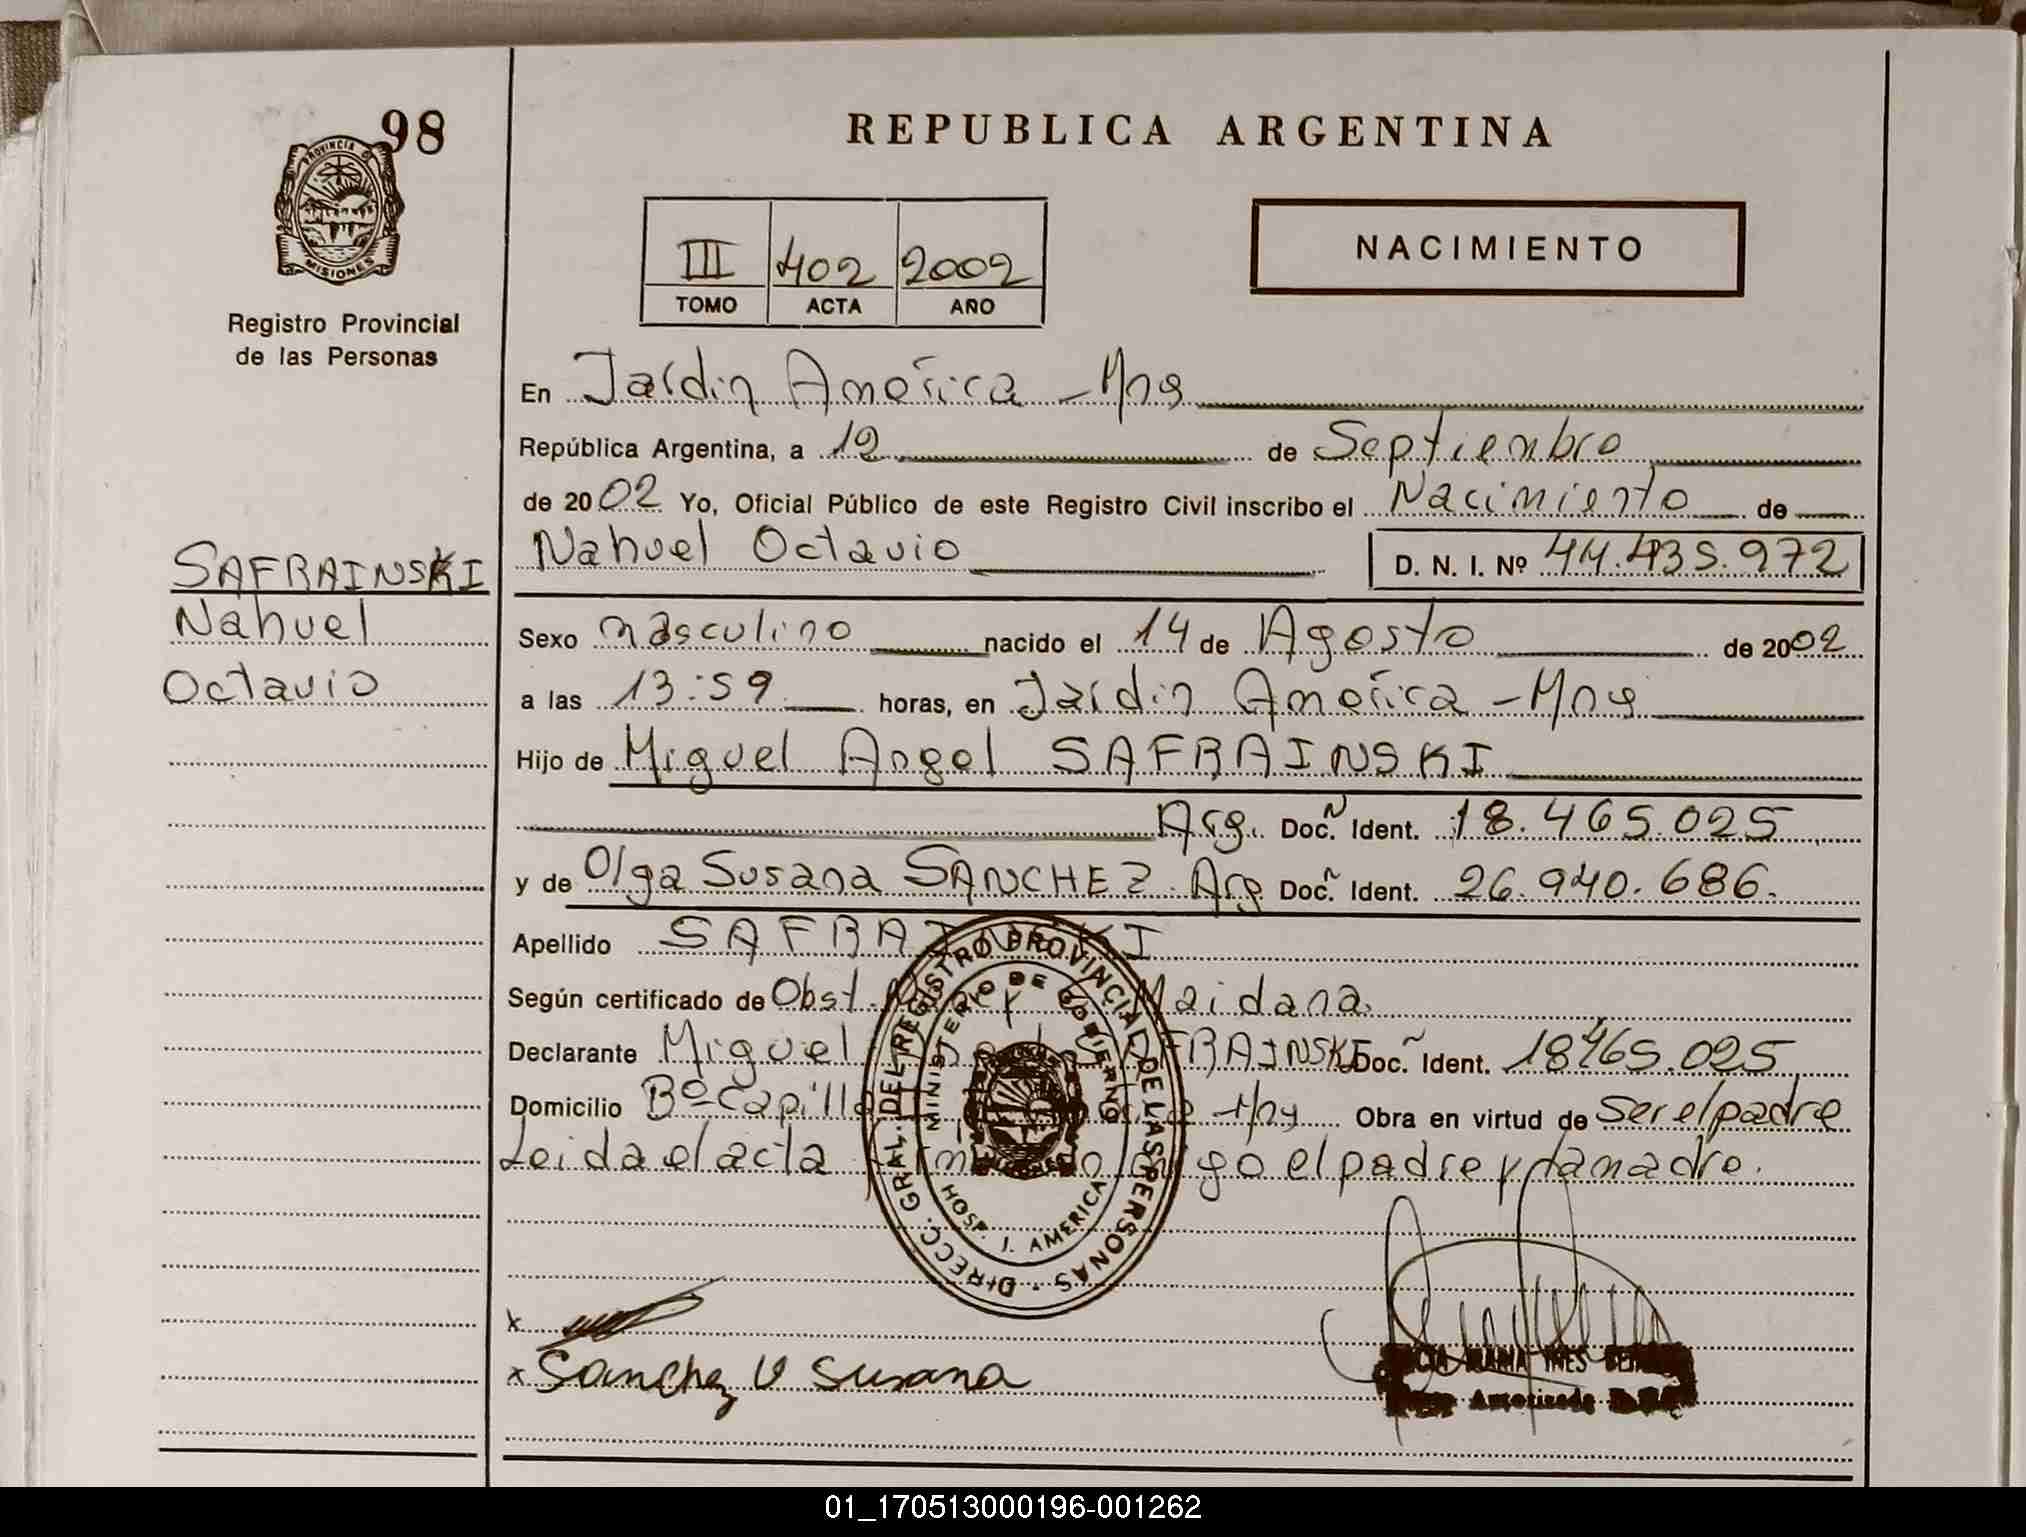 98
PROVINCIA D
MISIONES
Registro Provincial
de las Personas
SAFRAINSKI
Nahuel
Octavio
REPUBLICA ARGENTINA
III 402 2002
TOMO ACTA AÑO
NACIMIENTO
En Jardin América - Mns
República Argentina, a 12 de Septiembre
de 2002 Yo, Oficial Público de este Registro Civil inscribo el Nacimiento de
Nahuel Octavio D. N. I. Nº 44.435.972
Sexo masculino nacido el 14 de Agosto de 2002
a las 13:59 horas, en Jardin América - Mns
Hijo de Miguel Angel SAFRAINSKI
Arg. Doc. Ident. 18.465.025
y de Olga Susana SANCHEZ Arg Doc. Ident. 26.940.686.
Apellido SAFRAINSKI
Según certificado de Obst. Maidana
Declarante Miguel SAFRAINSKI Doc. Ident. 18465.025
Domicilio Bº Capilla Obra en virtud de ser el padre
Leida el acta el padre y la madre.
DIRECC. GRAL. DEL REGISTRO PROVINCIAL DE LAS PERSONAS
MINISTERIO DE GOBIERNO
HOSP. J. AMERICA
x
x Sanchez O Susana
MARIA INES
Autorizada
01_170513000196-001262